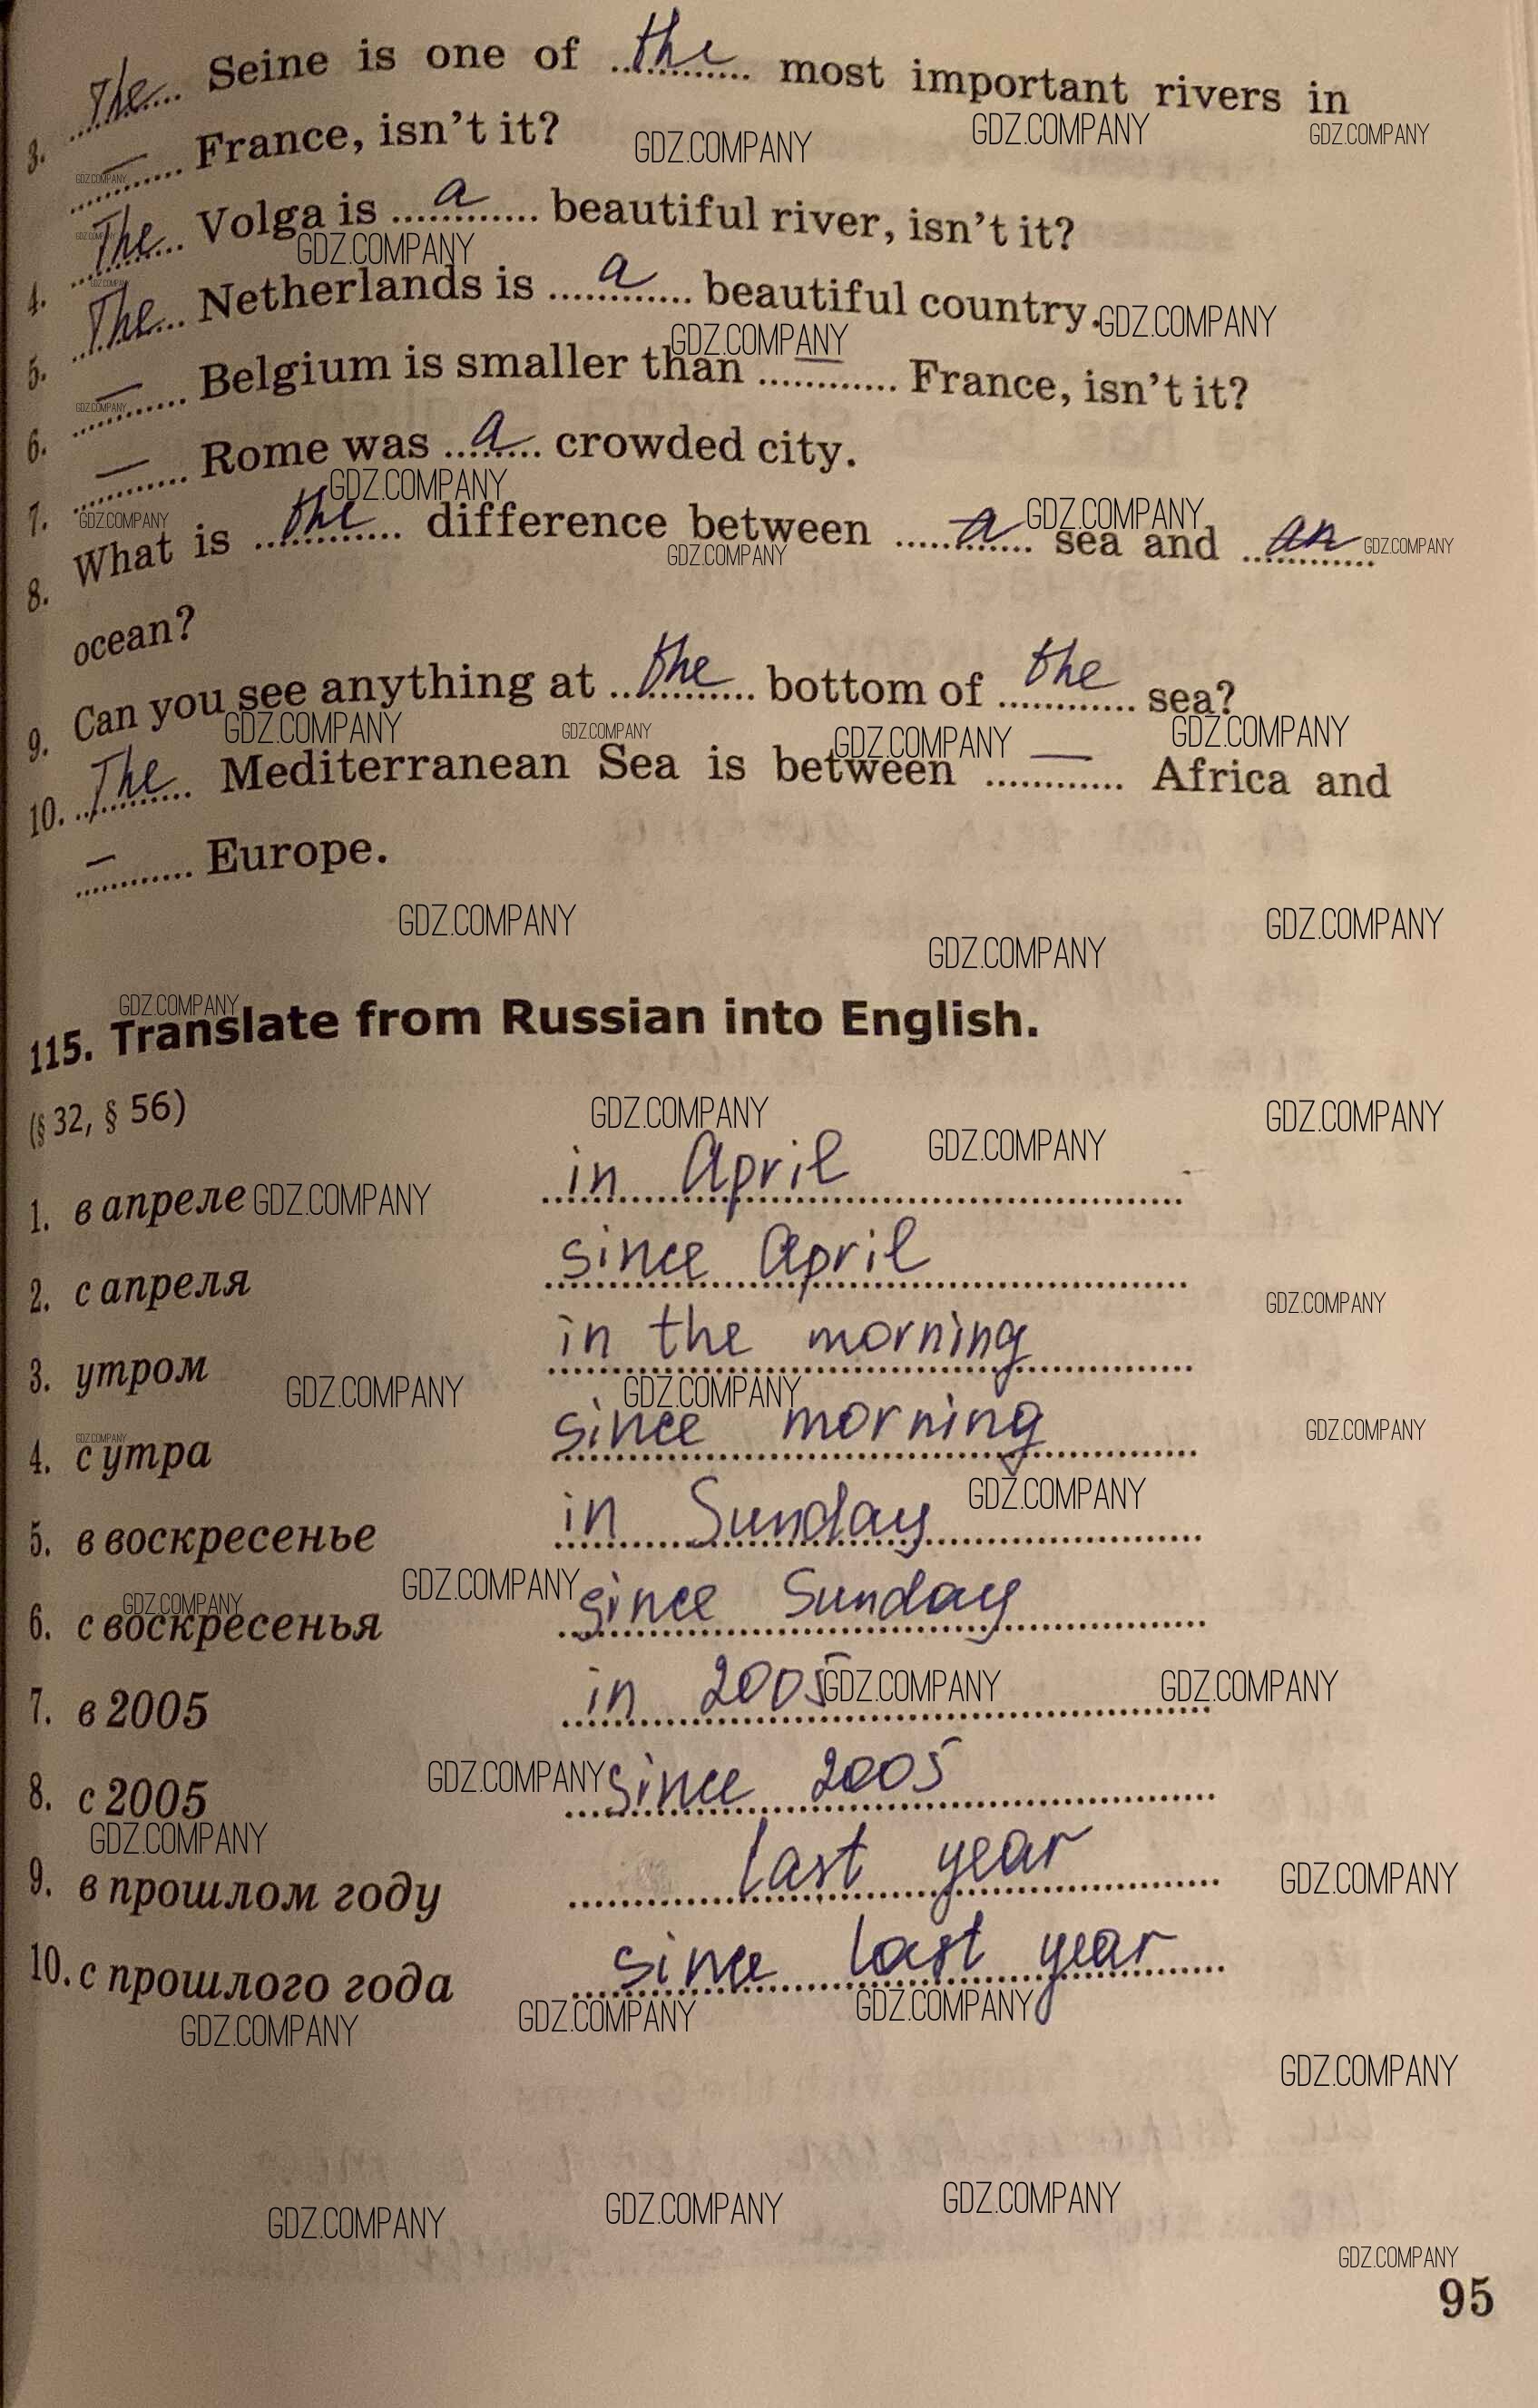 3. The Seine is one of the most important rivers in
— France, isn't it?
4. The Volga is a beautiful river, isn't it?
5. The Netherlands is a beautiful country.
6. — Belgium is smaller than — France, isn't it?
7. — Rome was a crowded city.
8. What is the difference between a sea and an
ocean?
9. Can you see anything at the bottom of the sea?
10. The Mediterranean Sea is between — Africa and
— Europe.
115. Translate from Russian into English.
(§ 32, § 56)
1. в апреле in April
2. с апреля since April
3. утром in the morning
4. с утра since morning
5. в воскресенье in Sunday
6. с воскресенья since Sunday
7. в 2005 in 2005
8. с 2005 since 2005
9. в прошлом году last year
10. с прошлого года since last year
GDZ.COMPANY
95